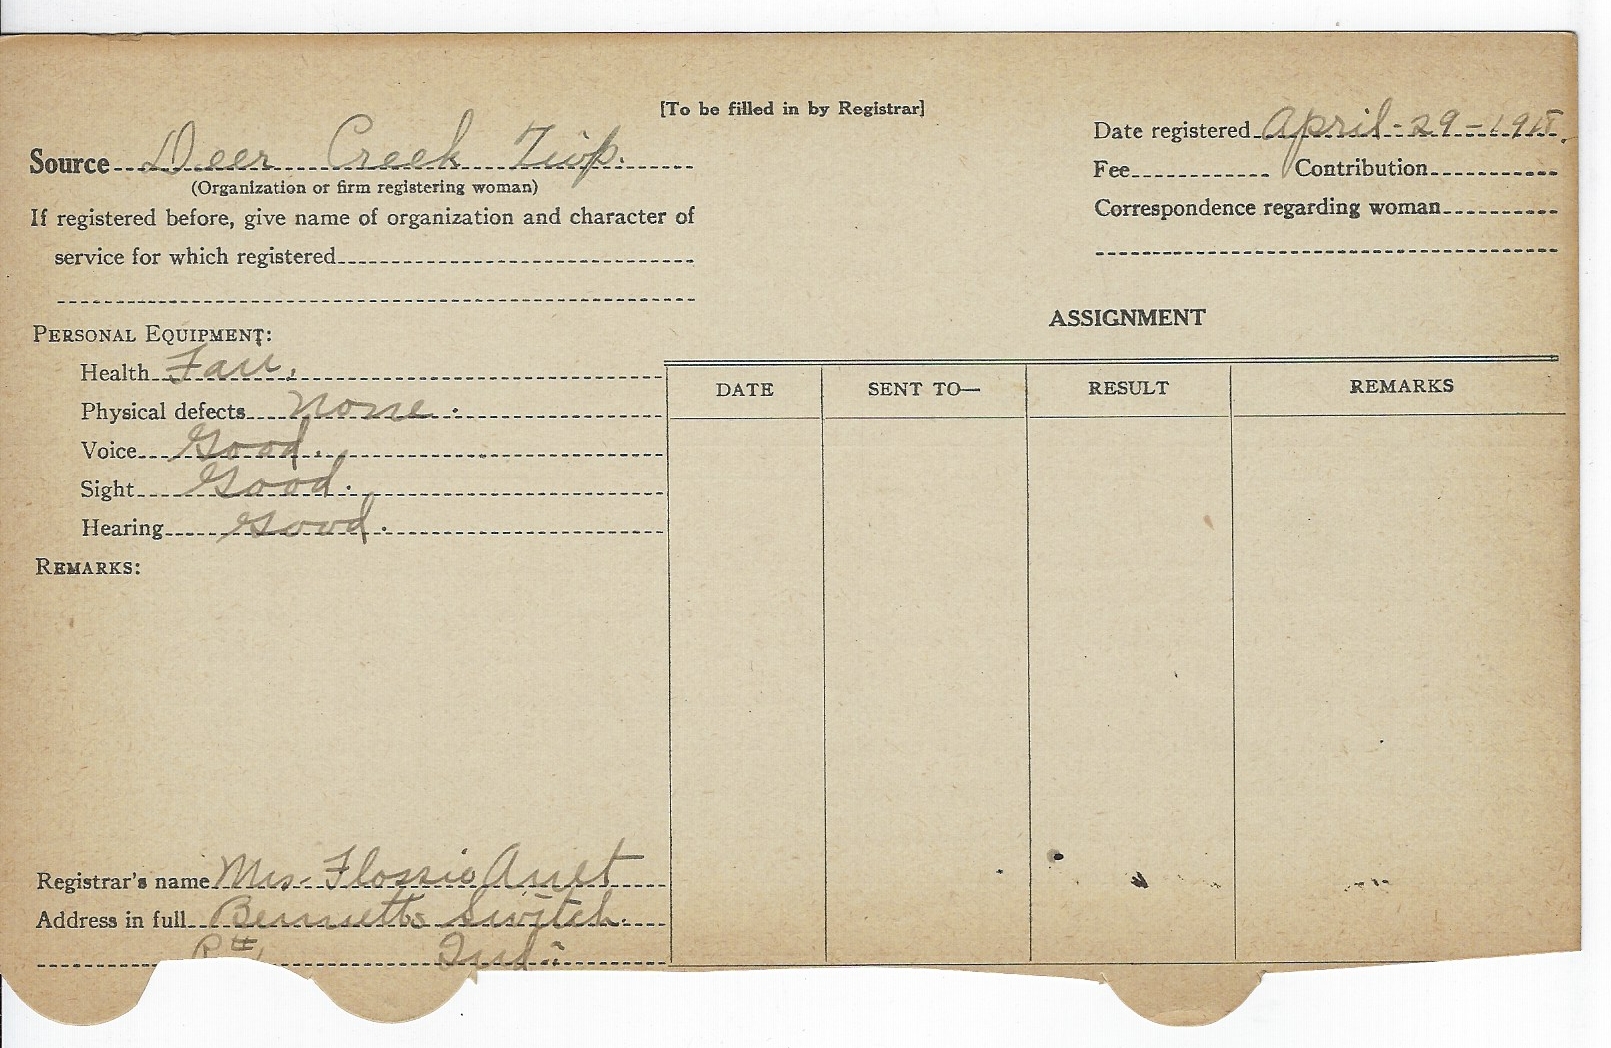 [To be filled in by Registrar]
Source Deer Creek Twp.
(Organization or firm registering woman)
If registered before, give name of organization and character of
service for which registered
Date registered April-29-1918.
Fee Contribution
Correspondence regarding woman
PERSONAL EQUIPMENT:
Health Fair.
Physical defects None.
Voice Good.
Sight Good.
Hearing Good.
REMARKS:
ASSIGNMENT
DATE SENT TO— RESULT REMARKS
Registrar's name Mrs. Flossie
Address in full Bennetts Switch.
Ind.